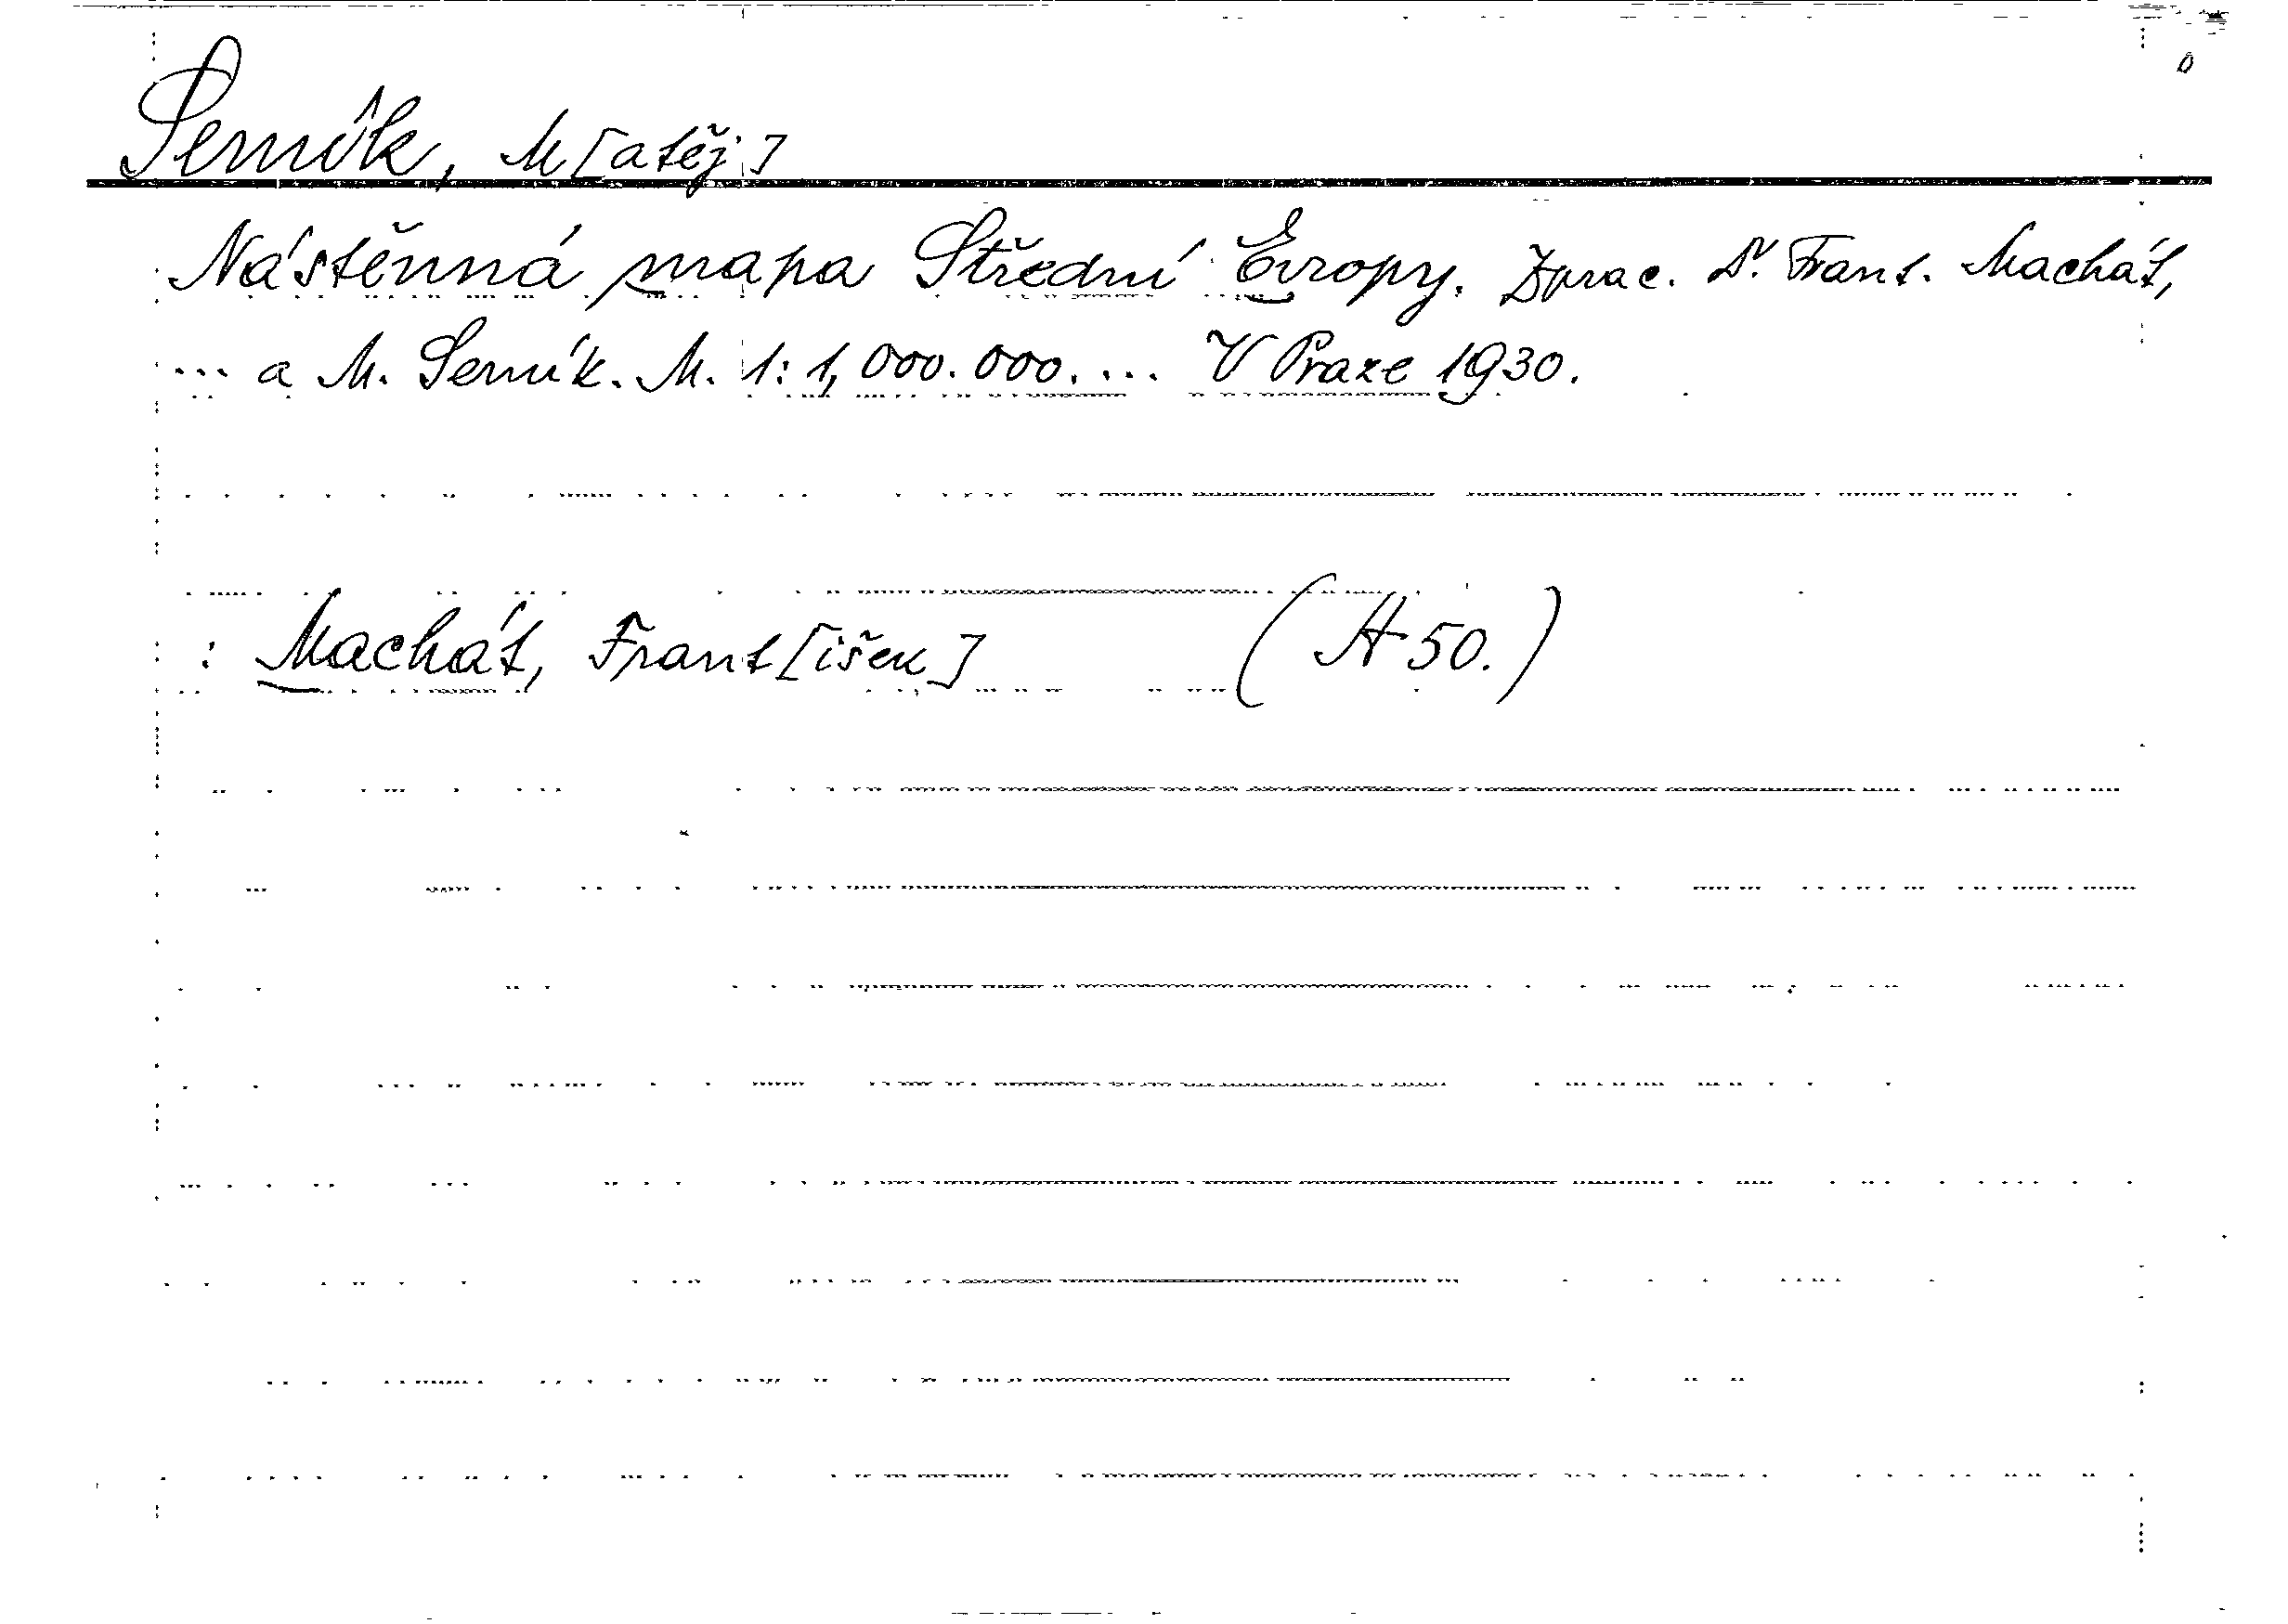 Semík, M[atěj]
Nástěnná mapa Střední Evropy. Zprac. Dr. Frant. Machát,
... a M. Semík. M. 1:1,000.000. ... V Praze 1930.
: Machát, Frant[išek] (A 50.)